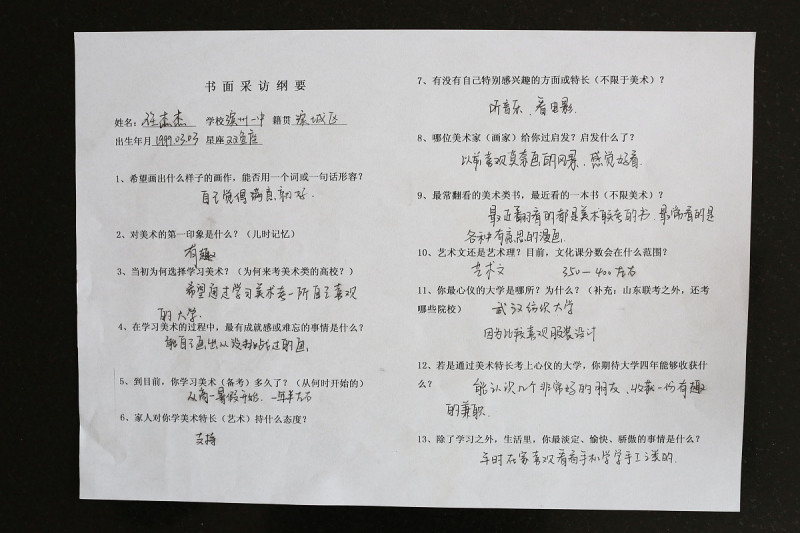 书面采访纲要
姓名：任杰杰 学校 滨州一中 籍贯 滨城区
出生年月 1999.03.03 星座 双鱼座
1、希望画出什么样子的画作，能否用一个词或一句话形容？
自己觉得满意就好
2、对美术的第一印象是什么？（儿时记忆）
有趣
3、当初为何选择学习美术？（为何来考美术类的高校？）
希望通过学习美术考一所自己喜欢
的大学.
4、在学习美术的过程中，最有成就感或难忘的事情是什么？
能自己画出从没接触过的画.
5、到目前，你学习美术（备考）多久了？（从何时开始的）
从高一暑假开始. 一年半左右
6、家人对你学美术特长（艺术）持什么态度？
支持
7、有没有自己特别感兴趣的方面或特长（不限于美术）？
听音乐、看电影.
8、哪位美术家（画家）给你过启发？启发什么了？
以前喜欢莫奈画的风景，感觉好看.
9、最常翻看的美术类书，最近看的一本书（不限美术）？
最近翻看的都是美术联考的书. 最常看的是
各种有意思的漫画.
10、艺术文还是艺术理？目前，文化课分数会在什么范围？
艺术文 350—400左右
11、你最心仪的大学是哪所？为什么？（补充：山东联考之外，还考
哪些院校） 武汉纺织大学
因为比较喜欢服装设计
12、若是通过美术特长考上心仪的大学，你期待大学四年能够收获什
么？ 能认识几个非常好的朋友，收获一份有趣
的兼职.
13、除了学习之外，生活里，你最淡定、愉快、骄傲的事情是什么？
平时在家喜欢看看手机学学手工之类的.